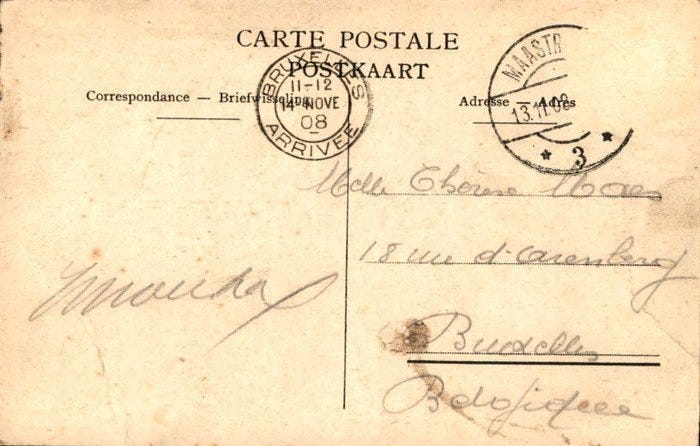 CARTE POSTALE
POSTKAART
Correspondance — Briefwisseling
Adresse — Adres
BRUXELLES
11-12
14 NOVE
08
ARRIVÉE
MAASTR
13.11.08
* 3 *
Mdlle Thérèse Maes
18 rue d'arenberg
Bruxelles
Belgique